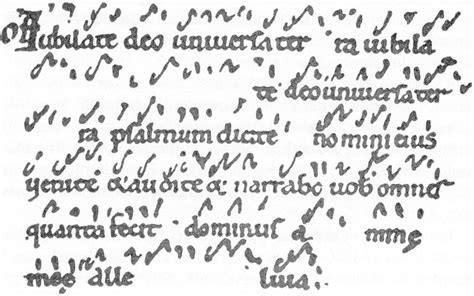 Iubilate deo universa ter ra iubila
te deo universa ter
ra psalmum dicite nomini eius
venite & audite & narrabo vob omnes
quanta fecit dominus a nimę
męę alle luia.